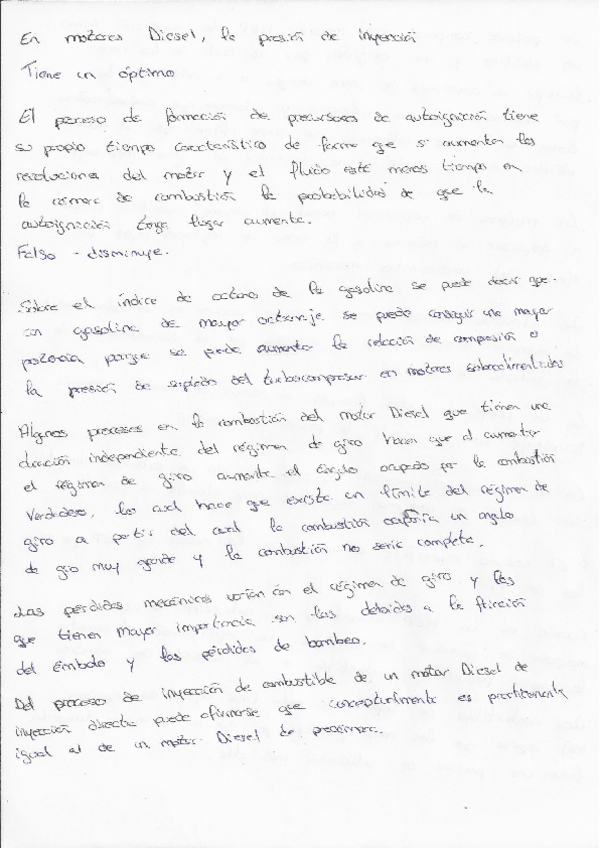 En motores Diesel, la presión de inyección
Tiene un óptimo
El proceso de formación de precursores de autoignición tiene
su propio tiempo característico de forma que si aumentan las
revoluciones del motor y el fluido esté menos tiempo en
la cámara de combustión la probabilidad de que la
autoignición tenga lugar aumenta.
Falso - disminuye.
Sobre el índice de octano de la gasolina se puede decir que
con gasolina de mayor octanaje se puede conseguir una mayor
potencia porque se puede aumentar la relación de compresión o
la presión de soplado del turbocompresor en motores sobrealimentados
Algunos procesos en la combustión del motor Diesel que tienen una
duración independiente del régimen de giro hacen que al aumentar
el régimen de giro aumente el ángulo ocupado por la combustión
Verdadero, lo cual hace que exista un límite del régimen de
giro a partir del cual la combustión ocuparía un angulo
de giro muy grande y la combustión no sería completa.
Las pérdidas mecánicas varían con el régimen de giro y las
que tienen mayor importancia son las debidas a la fricción
del émbolo y las pérdidas de bombeo.
Del proceso de inyección de combustible de un motor Diesel de
inyección directa puede afirmarse que conceptualmente es practicamente
igual al de un motor Diesel de precámara.